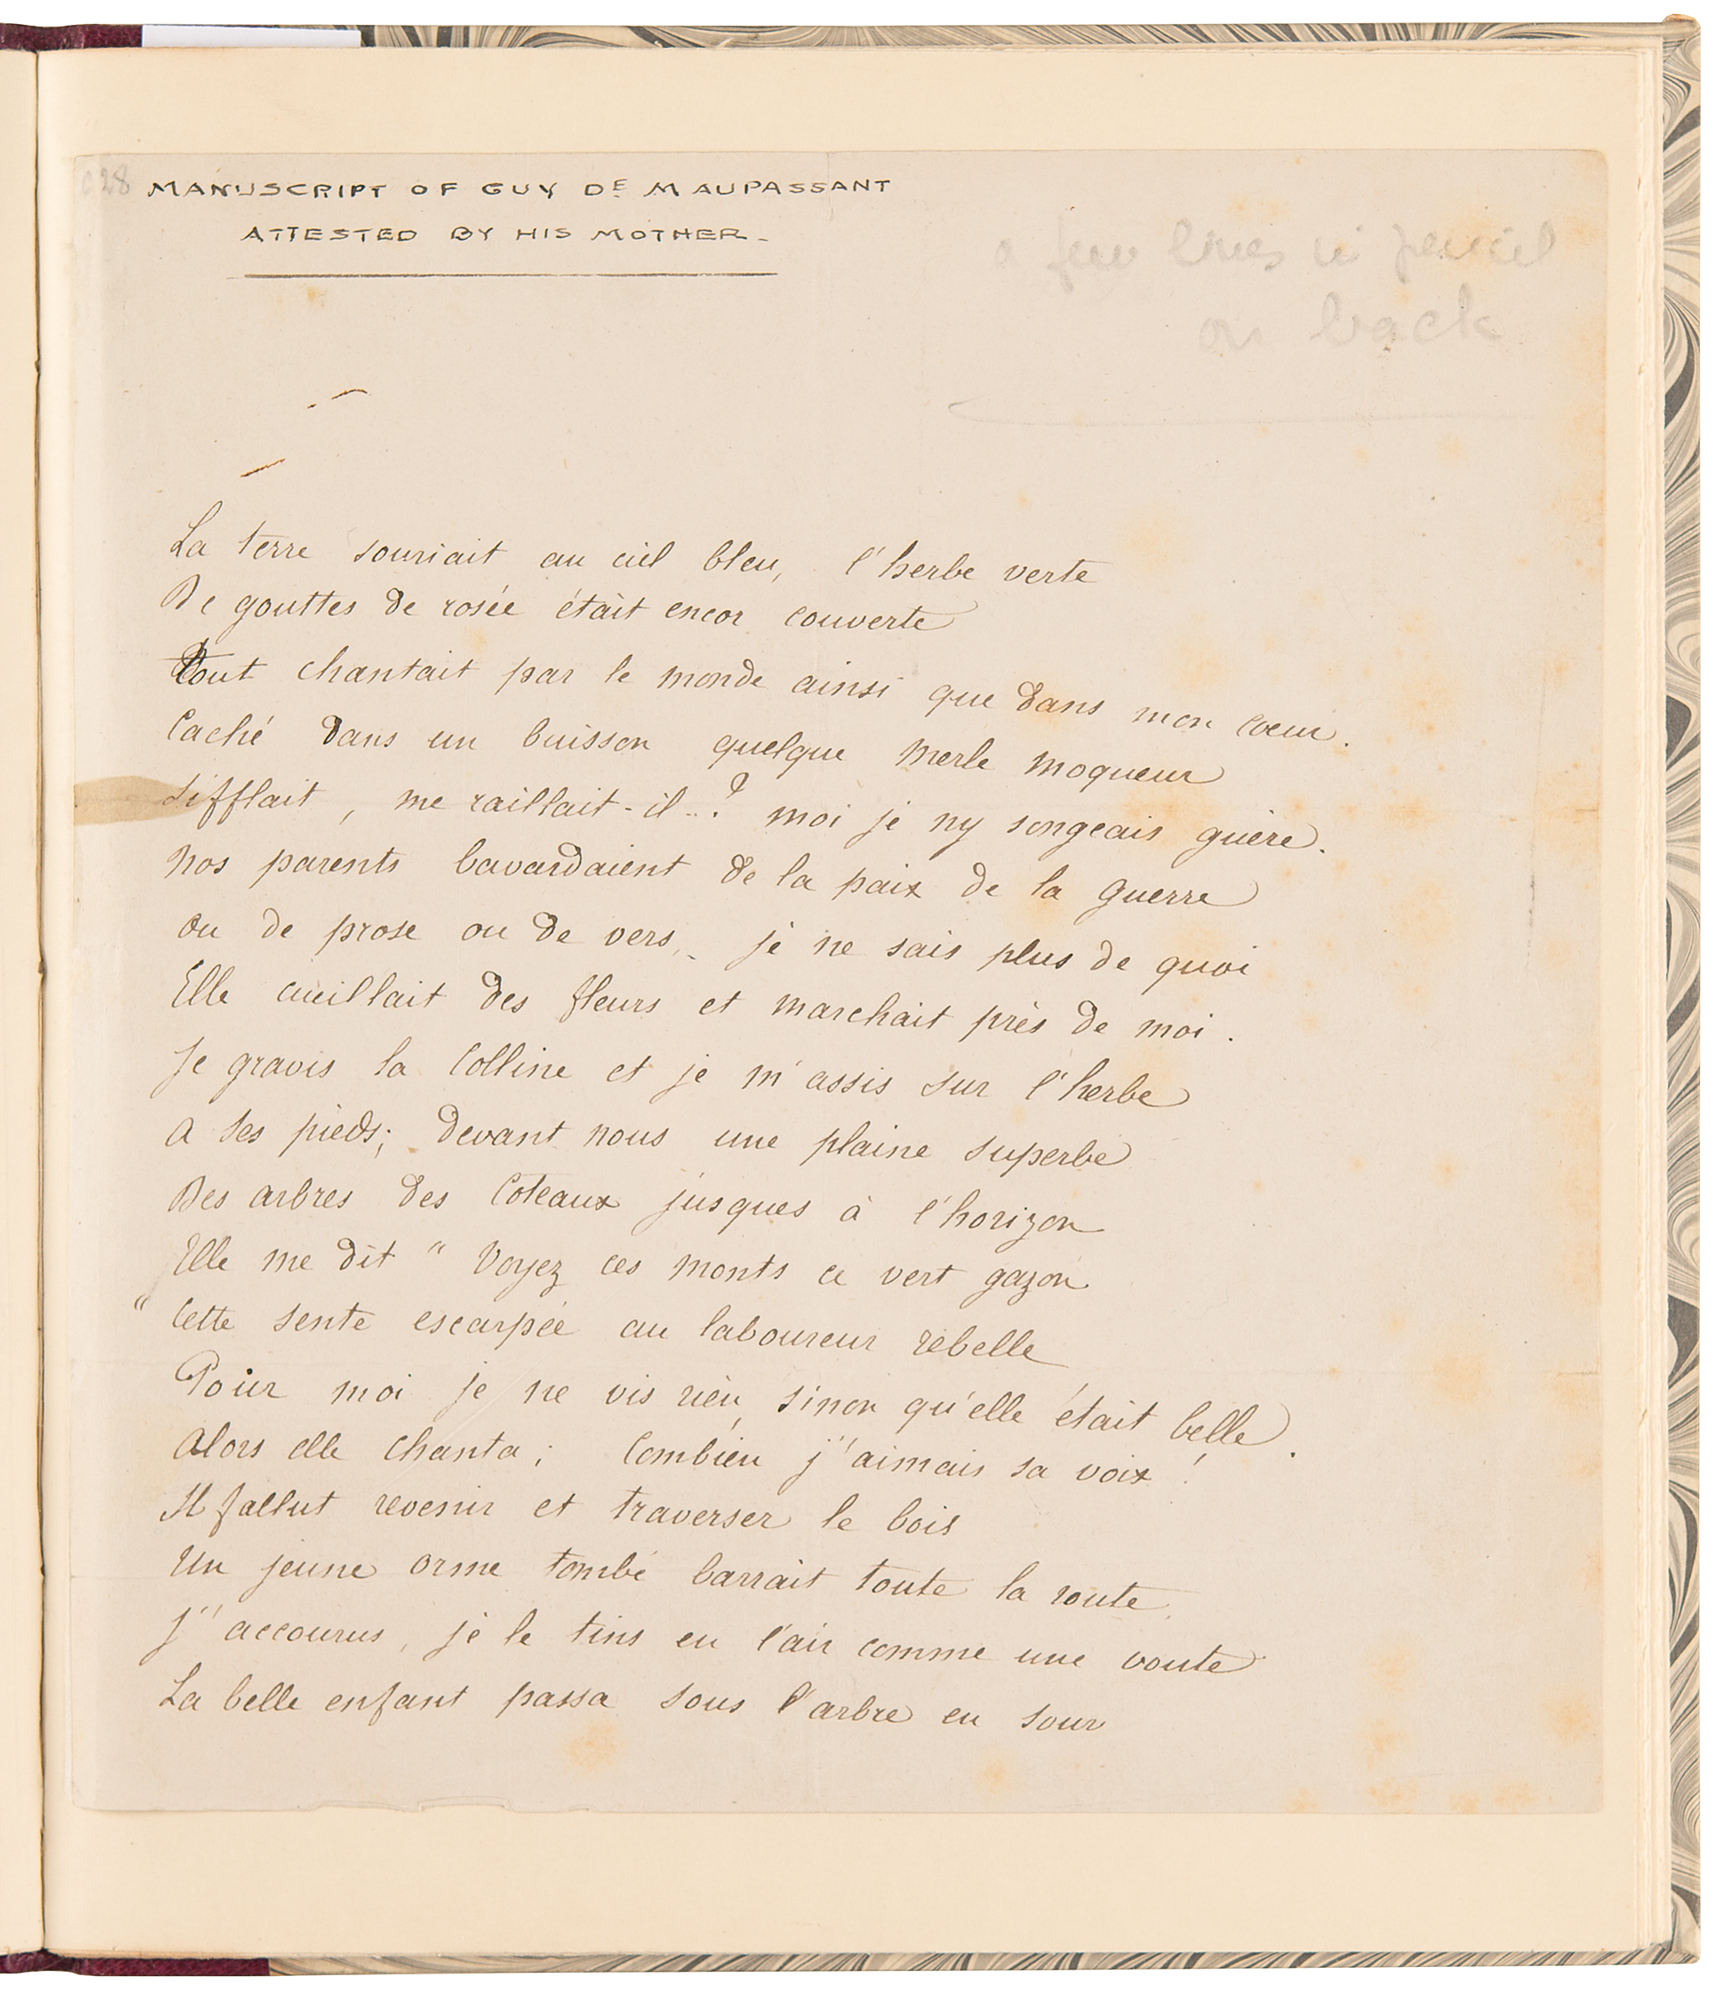 c28
MANUSCRIPT OF GUY DE MAUPASSANT
ATTESTED BY HIS MOTHER -
a few lines in pencil
on back
La terre souriait au ciel bleu, l'herbe verte
De gouttes de rosée était encor couverte
Tout chantait par le monde ainsi que dans mon coeur.
Caché dans un buisson quelque merle moqueur
Sifflait, me raillait-il..? moi je ny songeais guère.
Nos parents bavardaient de la paix de la guerre
Ou de prose ou de vers, je ne sais plus de quoi
Elle cueillait des fleurs et marchait près de moi.
Je gravis la Colline et je m'assis sur l'herbe
A ses pieds; devant nous une plaine superbe
Des arbres des Coteaux jusques à l'horizon
Elle me dit " Voyez ces monts ce vert gazon
" Cette sente escarpée au laboureur rebelle
Pour moi je ne vis rien, sinon qu'elle était belle.
Alors elle chanta; Combien j'aimais sa voix!
Il fallut revenir et traverser le bois
Un jeune orme tombé barrait toute la route,
J'accourus, je le tins en l'air comme une voute
La belle enfant passa sous l'arbre en sour